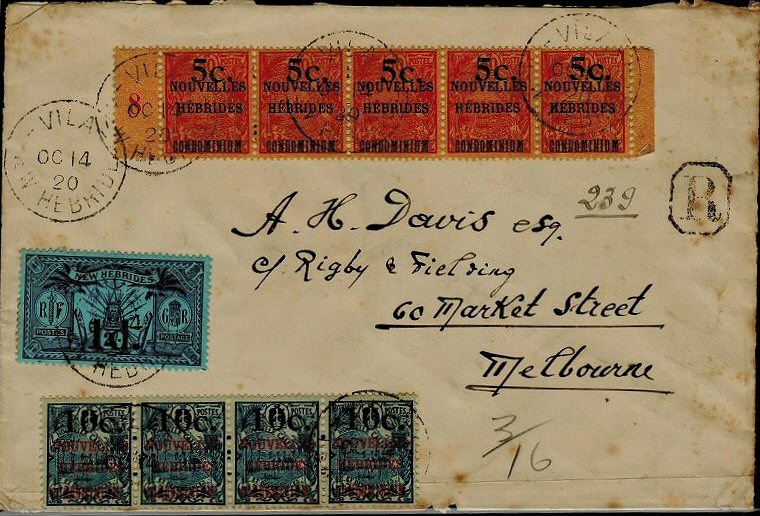 5c. 5c. 5c. 5c. 5c.
NOUVELLES NOUVELLES NOUVELLES NOUVELLES NOUVELLES
HÉBRIDES HÉBRIDES HÉBRIDES HÉBRIDES HÉBRIDES
CONDOMINIUM CONDOMINIUM CONDOMINIUM CONDOMINIUM CONDOMINIUM
8
VILA
OC 14
20
NEW HEBRIDES
R
239
A. H. Davis esq.
c/ Rigby & Fielding
60 Market Street
Melbourne
NEW HEBRIDES
R F
G R
POSTES
POSTAGE
1d
10c. 10c. 10c. 10c.
NOUVELLES NOUVELLES NOUVELLES NOUVELLES
HÉBRIDES HÉBRIDES HÉBRIDES HÉBRIDES
3/16